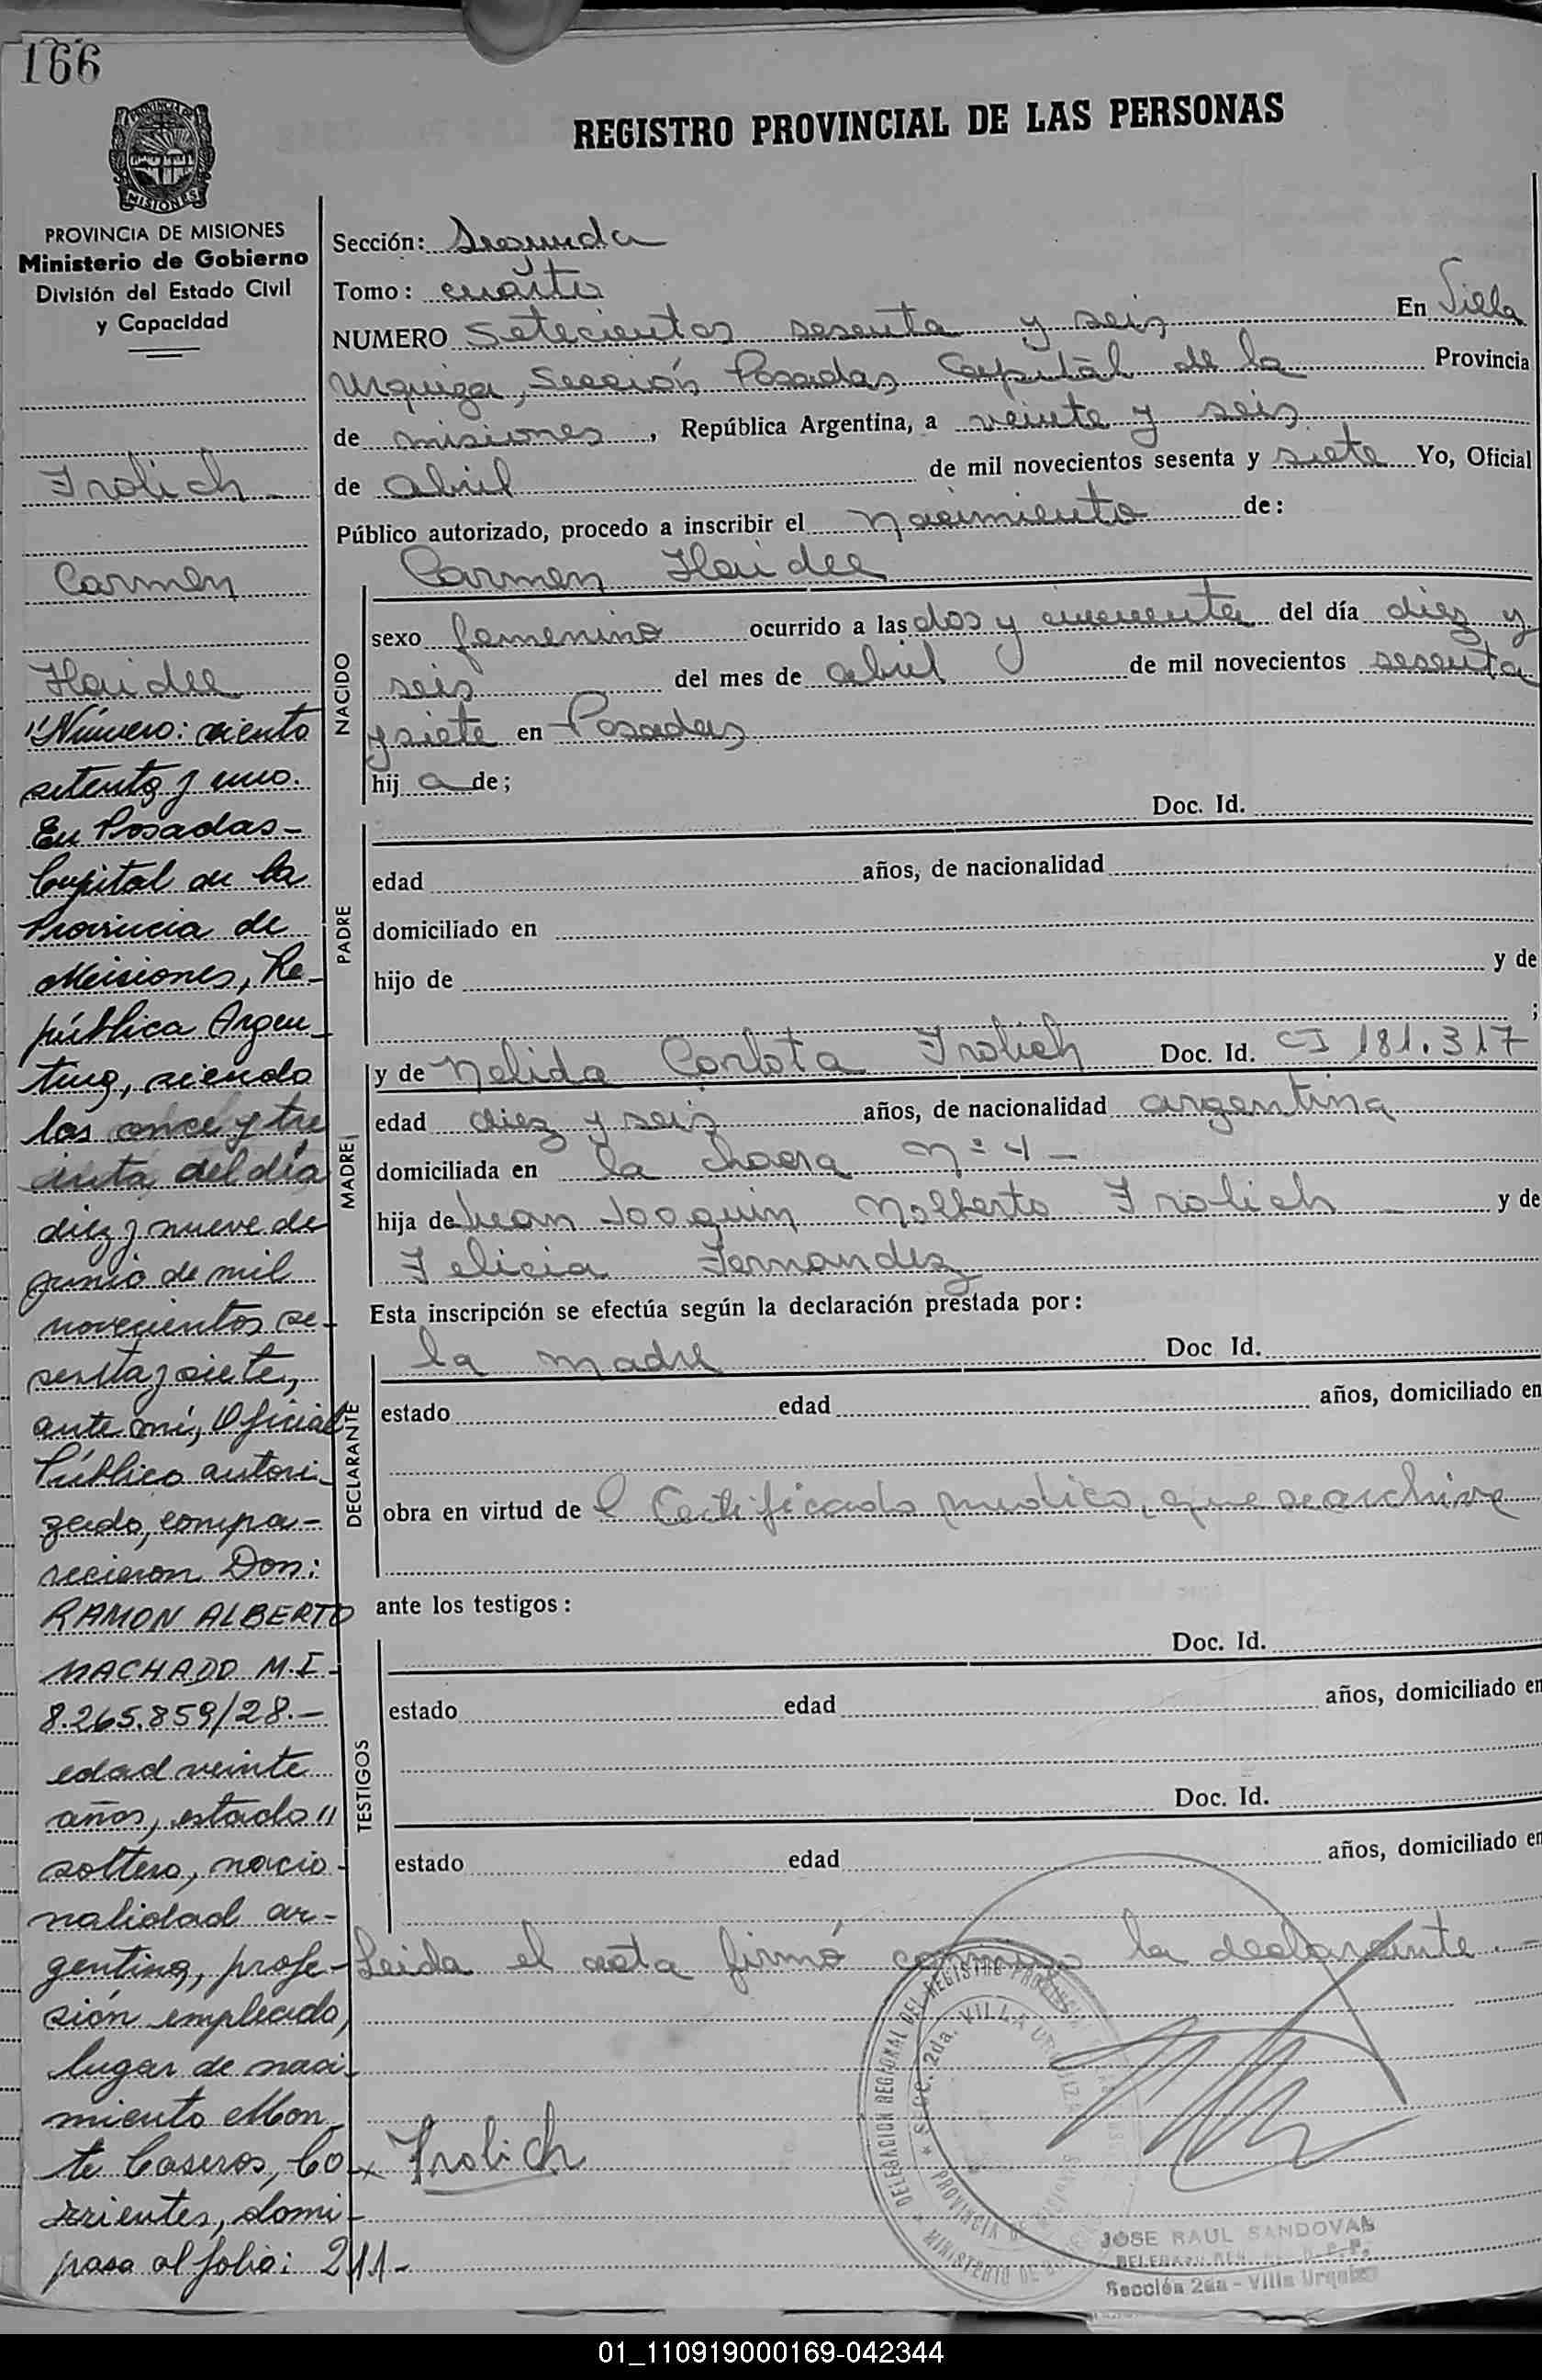 166
PROVINCIA DE MISIONES
MISIONES
REGISTRO PROVINCIAL DE LAS PERSONAS
PROVINCIA DE MISIONES
Ministerio de Gobierno
División del Estado Civil
y Capacidad
Frolich
Carmen
Haidee
"Número: ciento
setenta y uno.
En Posadas-
Capital de la
Provincia de
Misiones, Re-
pública Argen-
tina, siendo
las once y tre
inta del día
diez y nueve de
junio de mil
novecientos se-
senta y siete,
ante mí, Oficial
Público autori-
zado, compa-
recieron Don:
RAMON ALBERTO
MACHADO M.I-
8.265.859/28.-
edad veinte
años, estado "
soltero, nacio-
nalidad ar-
gentina, profe-
sión empleado,
lugar de naci-
miento Mon-
te Caseros, Co-
rrientes, domi-
pasa al folio: 211-
Sección: Segunda
Tomo: cuarto
NUMERO Setecientos sesenta y seis En Villa
Urquiza, Sección Posadas Capital de la Provincia
de misiones, República Argentina, a veinte y seis
de abril de mil novecientos sesenta y siete Yo, Oficial
Público autorizado, procedo a inscribir el nacimiento de:
Carmen Haidee
NACIDO
sexo femenino ocurrido a las dos y cincuenta del día diez y
seis del mes de abril de mil novecientos sesenta
y siete en Posadas
hij a de;
PADRE
Doc. Id.
edad años, de nacionalidad
domiciliado en
hijo de y de
;
MADRE
y de Nelida Carlota Frolich Doc. Id. CI 181.317
edad diez y seis años, de nacionalidad argentina
domiciliada en la chacra nº 4 -
hija de Juan Joaquin Nolberto Frolich y de
Felicia Fernandez
Esta inscripción se efectúa según la declaración prestada por:
DECLARANTE
la madre Doc Id.
estado edad años, domiciliado en
obra en virtud de l Certificado medico, que se archiva
ante los testigos:
TESTIGOS
Doc. Id.
estado edad años, domiciliado en
Doc. Id.
estado edad años, domiciliado en
Leida el acta firmó conmigo la declarante.-
x Frolich
DELEGACION REGIONAL DEL REGISTRO PROVINCIAL
SECC. 2da. VILLA URQUIZA
PROVINCIA DE
MINISTERIO DE
JOSE RAUL SANDOVAL
Sección 2da - Villa Urquiza
01_110919000169-042344